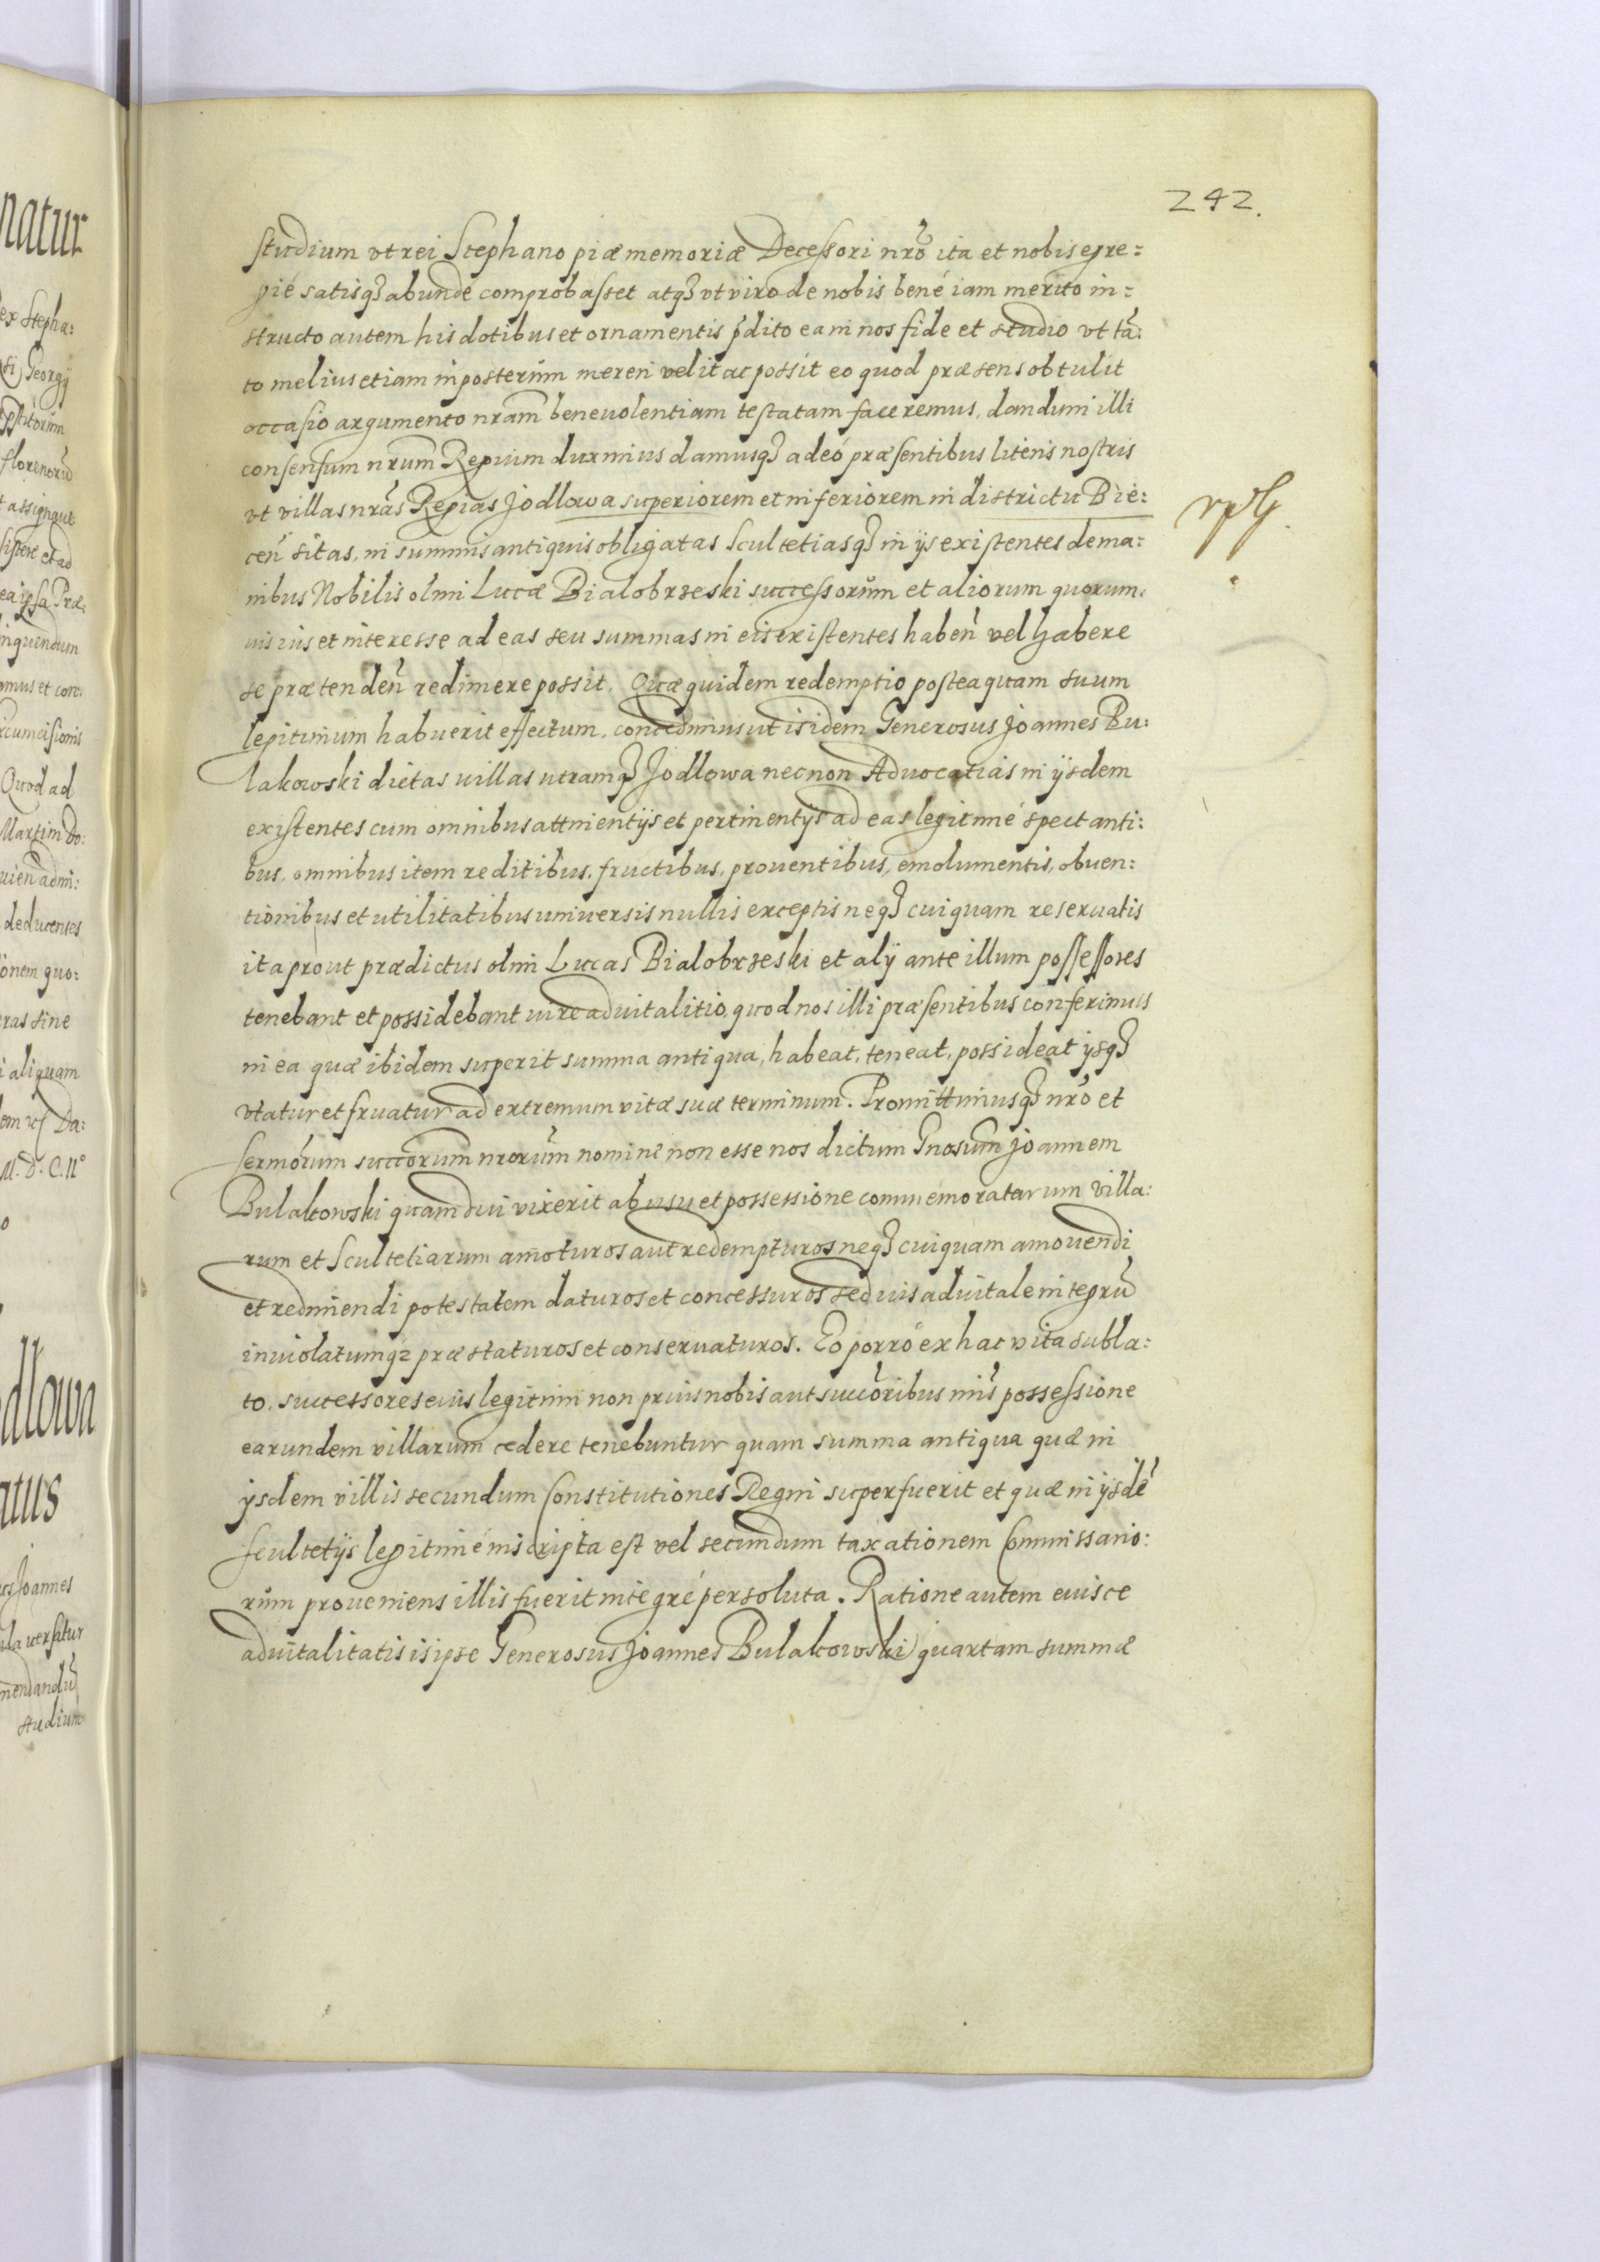 242.
studium vt rei Stephano piæ memoriæ Decessori nrõ ita et nobis egre:
gié satisq₃ abunde comprobasset atq₃ vt viro de nobis bené iam merito in:
structo autem his dotibus et ornamentis p̃dito ea in nos fide et studio vt tã:
to melius etiam in posterũm mereri velit ac possit eo quod præsens obtulit
occasio argumento nram̃ beneuolentiam testatam faceremus, dandum illi
consensum nrum̃ Regium duximus damusq₃ adeó præsentibus literis nostris
vt villas nrãs Regias Jodlowa superiorem et inferiorem in districtu Bie:
ceñ sitas, in summis antiquis obligatas Scultetiasq₃ in ijs existentes de ma:
nibus Nobilis olmi Lucæ Bialobrzeski successorũm et aliorum quorum:
uis ius et interesse ad eas seu summas in eis existentes habeñ vel habere
se prætendeñ redimere possit. Quæ quidem redemptio posteaquam suum
legitimum habuerit effectum, concedimus ut is idem Generosus Joannes Bu:
lakowski dictas villas utramq₃ Jodlowa necnon Aduocatias in ijsdem
existentes cum omnibus attinentijs et pertinentijs ad eas legitimé spectanti:
bus, omnibus item reditibus, fructibus, prouentibus, emolumentis, obuen:
tionibus et utilitatibus uniuersis nullis exceptis neq₃ cuiquam reseruatis
ita prout prædictus olmi Lucas Bialobrzeski et alij ante illum possessores
tenebant et possidebant iure aduitalitio, quod nos illi præsentibus conferimus
in ea quæ ibidem superit summa antiqua, habeat, teneat, possideat ijsq₃
vtatur et fruatur ad extremum vitæ suæ terminum. Promittimusq₃ nrõ et
sermõrum succorum̃ nrorũm nomine non esse nos dictum Gnosum̃ Joannem
Bulakowski quamdiu vixerit ab usu et possessione commemoratarum villa:
rum et Scultetiarum amoturos aut redempturos neq₃ cuiquam amouendi
et redimendi potestatem daturos et concessuros sed ius aduitale integrũ
inuiolatumq₃ præstaturos et conseruaturos. Eo porró ex hac vita subla:
to, successores eius legitimi non prius nobis aut succõribus nris̃ possessione
earundem villarum cedere tenebuntur quam summa antiqua quæ in
ijsdem villis secundum Constitutiones Regni superfuerit et quæ in ijsdẽ
scultetijs legitimé inscripta est vel secundum taxationem Commissario:
rũm proueniens illis fuerit integré persoluta. Ratione autem eiusce
aduitalitatis is ipse Generosus Joannes Bulakowski quartam summæ